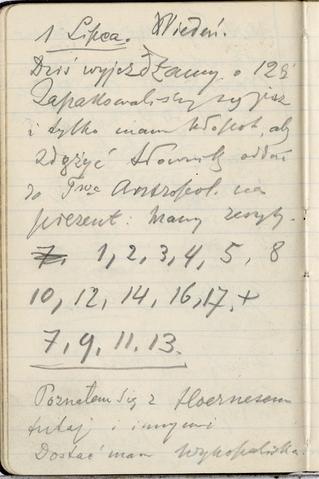 1 Lipca. Wiedeń.
Dziś wyjeżdżamy o 12½
Zapakowaliśmy się już
i tylko mam kłopot, aby
zdążyć słownik oddać
do Twa Antropol. na
prezent: Mamy zeszyty.
7. 1, 2, 3, 4, 5, 8
10, 12, 14, 16, 17, +
7, 9, 11, 13.
Poznałem się z Hoernesem
tutaj i innymi
Dostać mam wykopaliska.